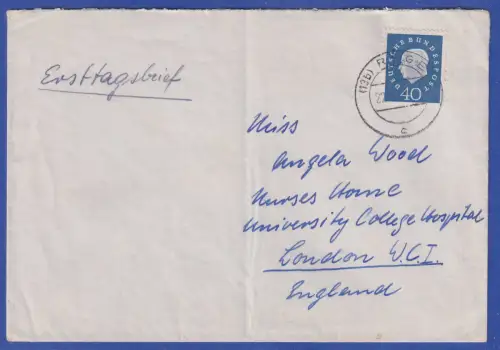 Ersttagsbrief
(13b)
DEUTSCHE BUNDESPOST
40
c
Miss
Angela Wood
Nurses Home
University College Hospital
London W.C.I.
England